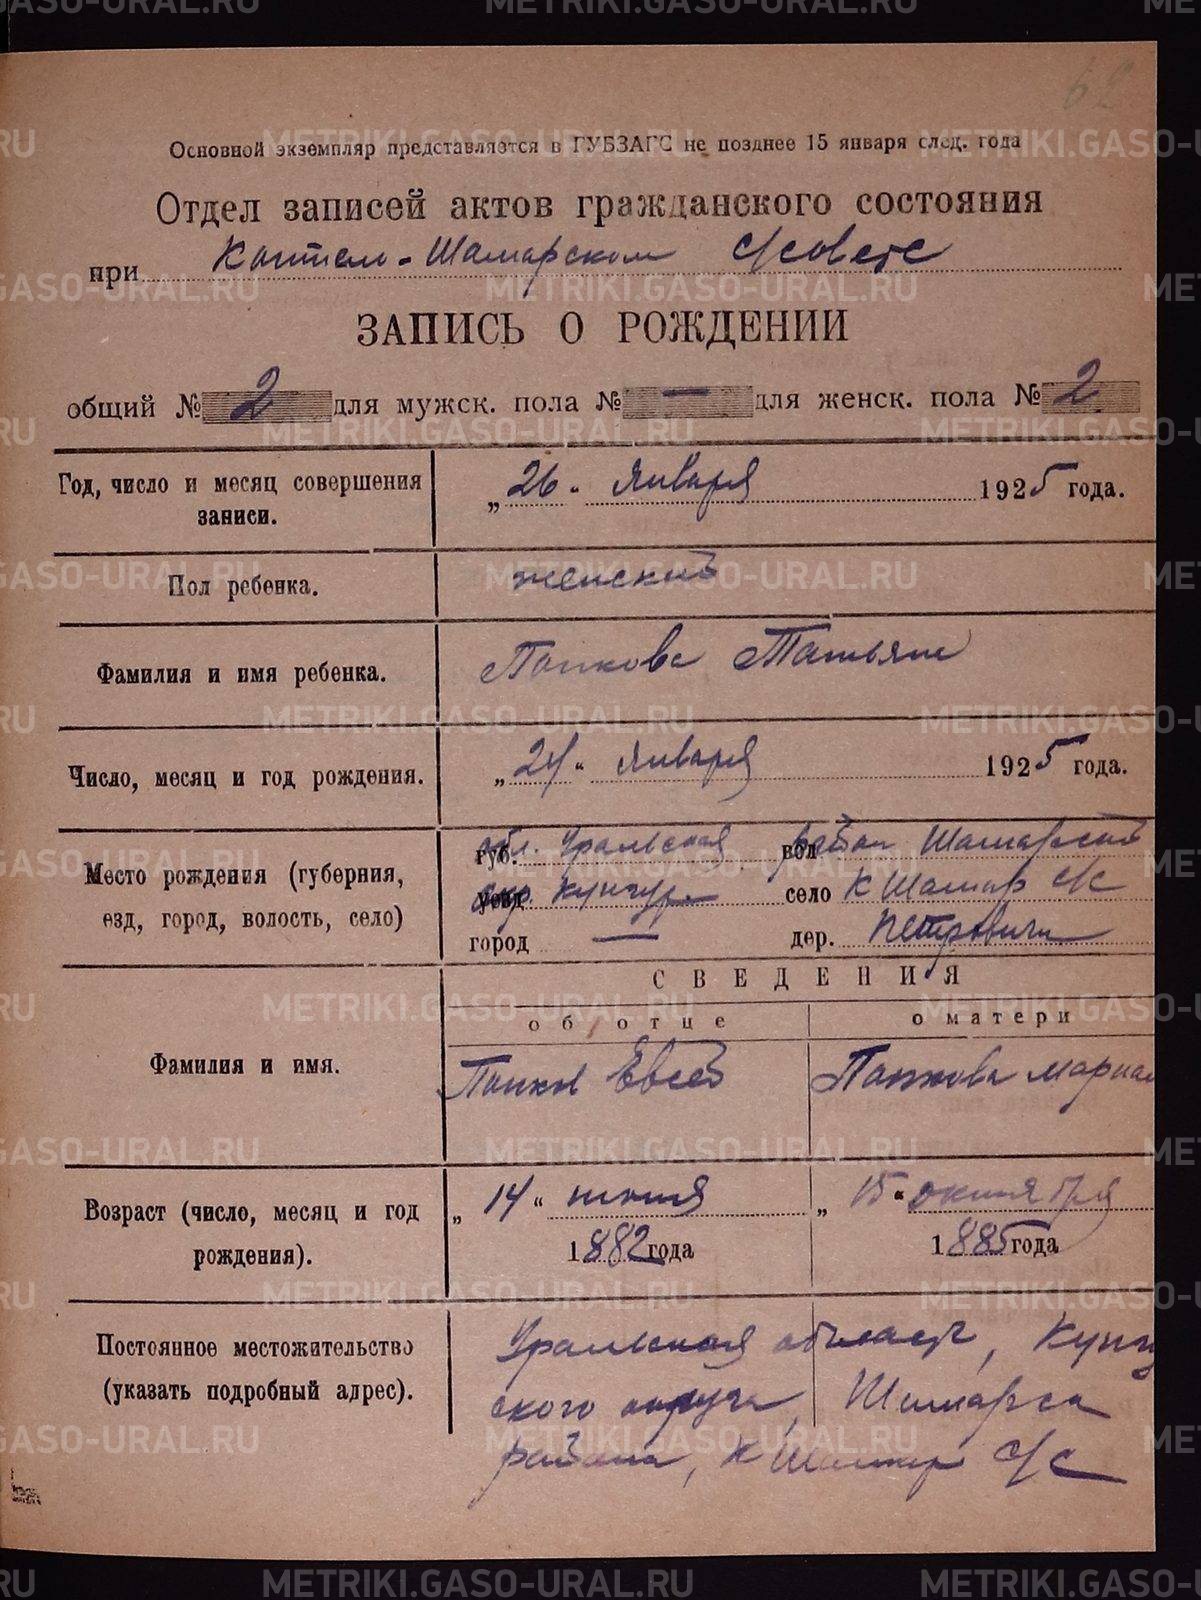 62
Основной экземпляр представляется в ГУБЗАГС не позднее 15 января след. года
Отдел записей актов гражданского состояния
при Коптело-Шамарском с/совете
ЗАПИСЬ О РОЖДЕНИИ
общий № 2 для мужск. пола № — для женск. пола № 2
Год, число и месяц совершения записи.
„26“ января 1925 года.
Пол ребенка.
женский
Фамилия и имя ребенка.
Попкова Татьяна
Число, месяц и год рождения.
„24“ января 1925 года.
Место рождения (губерния,
езд, город, волость, село)
губ. обл. Уральская вол. район Шамарский
уезд окр. Кунгур. село К Шамар с/с
город — дер. Петровичи
СВЕДЕНИЯ
об отце
о матери
Фамилия и имя.
Попков Евсей
Попкова Мария
Возраст (число, месяц и год
рождения).
„14“ июня
1882 года
„15“ октября
1885 года
Постоянное местожительство
(указать подробный адрес).
Уральская область, Кунгу
ского округа, Шамарск
района, К Шамар с/с
METRIKI.GASO-URAL.RU